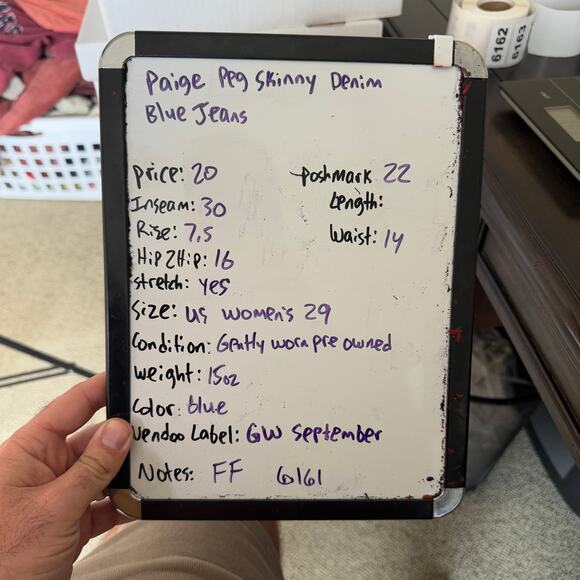 Paige Peg Skinny Denim
Blue Jeans
price: 20
poshmark 22
Inseam: 30
Length:
Rise: 7.5
Waist: 14
Hip 2 Hip: 16
stretch: yes
Size: us women's 29
Condition: Gently worn pre owned
weight: 15oz
Color: blue
Vendoo Label: GW September
Notes: FF 6161
6162
6163